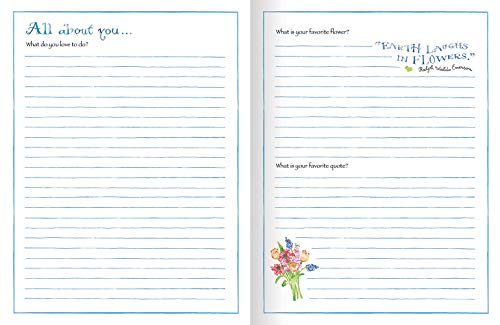 All about you...
What do you love to do?
What is your favorite flower?
"EARTH LAUGHS
IN FLOWERS."
Ralph Waldo Emerson
What is your favorite quote?